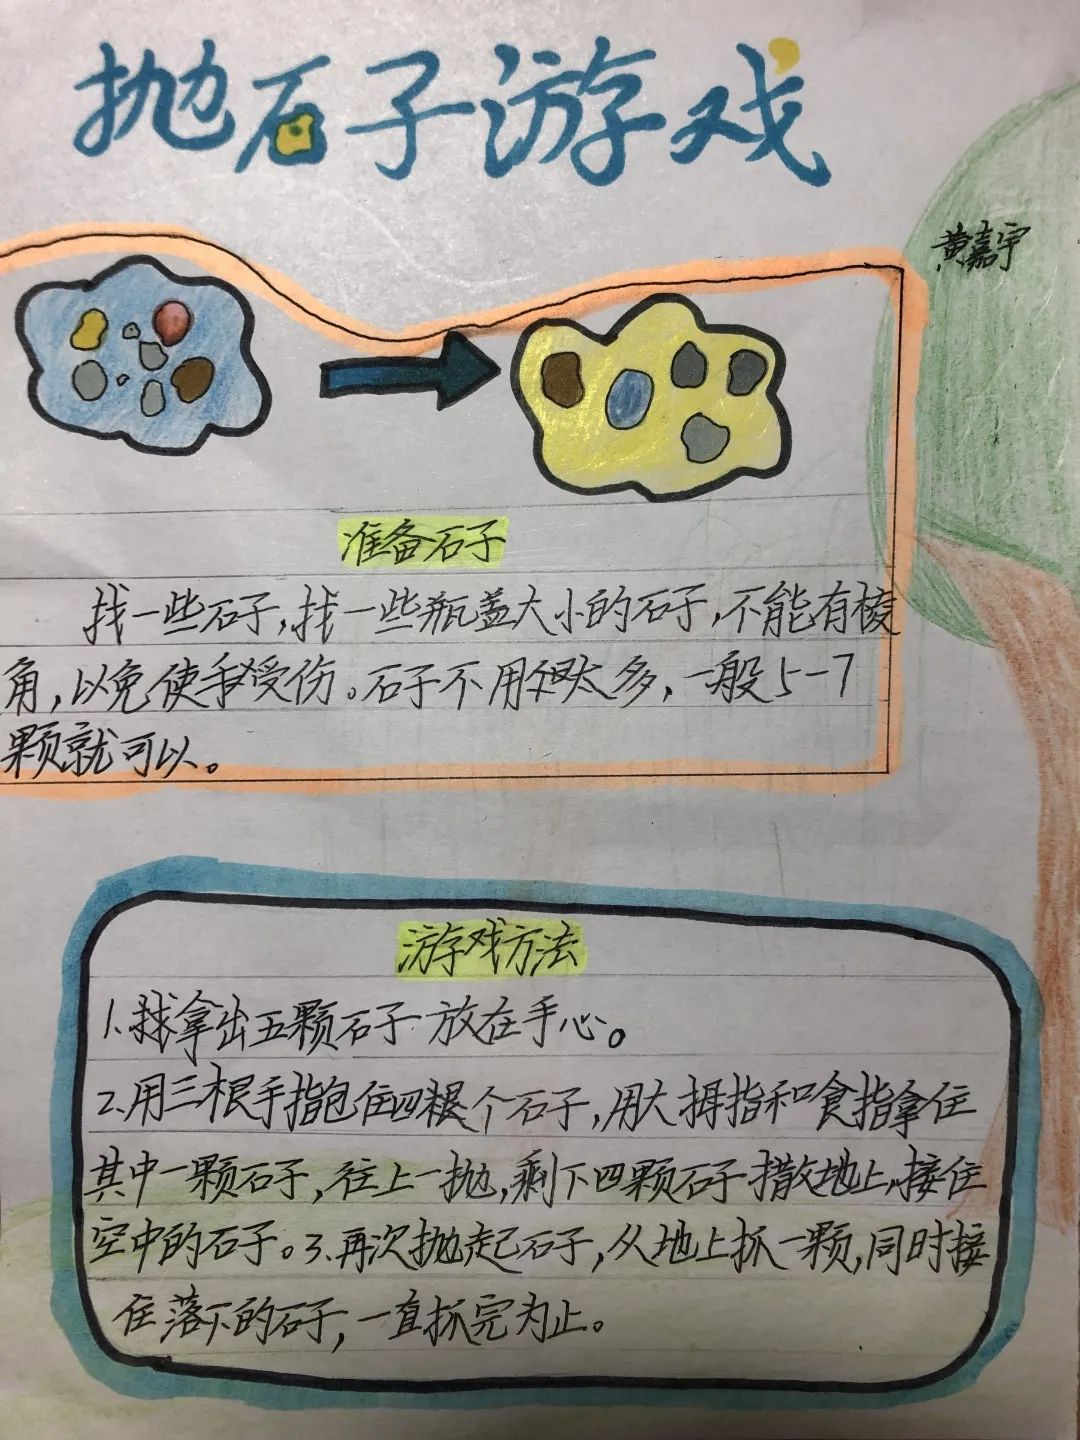 抛石子游戏
黄嘉宇
准备石子
找一些石子,找一些瓶盖大小的石子,不能有棱
角,以免使手受伤。石子不用太多,一般5-7
颗就可以。
游戏方法
1.找拿出五颗石子放在手心。
2.用三根手指包住四根个石子,用大拇指和食指拿住
其中一颗石子,往上一抛,剩下四颗石子撒地上,接住
空中的石子。3.再次抛起石子,从地上抓一颗,同时接
住落下的石子,一直抓完为止。